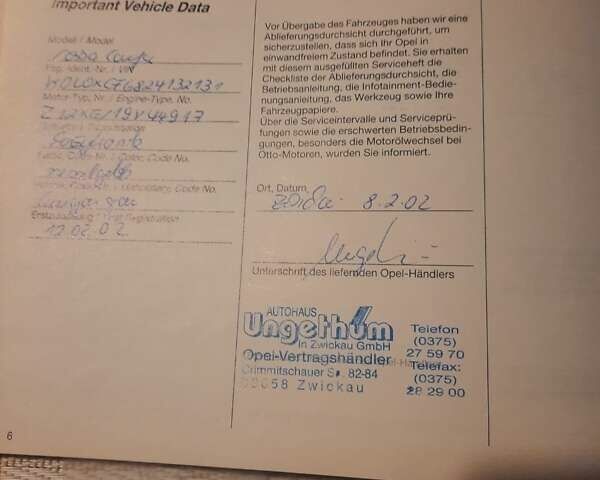 Important Vehicle Data
Modell / Model
Corsa
Fzg.-Ident.-Nr. / VIN
W0L0XCF6824132131
Motor-Typ, Nr. / Engine-Type, No.
Z12XE/19V44917
Farbe, Code-Nr. / Color, Code No.
Erstzulassung / First Registration
12.02.02
6
Vor Übergabe des Fahrzeuges haben wir eine
Ablieferungsdurchsicht durchgeführt, um
sicherzustellen, dass sich Ihr Opel in
einwandfreiem Zustand befindet. Sie erhalten
mit diesem ausgefüllten Serviceheft die
Checkliste der Ablieferungsdurchsicht, die
Betriebsanleitung, die Infotainment-Bedie-
nungsanleitung, das Werkzeug sowie Ihre
Fahrzeugpapiere.
Über die Serviceintervalle und Serviceprü-
fungen sowie die erschwerten Betriebsbedin-
gungen, besonders die Motorölwechsel bei
Otto-Motoren, wurden Sie informiert.
Ort, Datum
8.2.02
Unterschrift des liefernden Opel-Händlers
AUTOHAUS
Ungethüm
in Zwickau GmbH
Opel-Vertragshändler
Crimmitschauer Str. 82-84
08058 Zwickau
Telefon
(0375)
27 59 70
Telefax:
(0375)
28 29 00